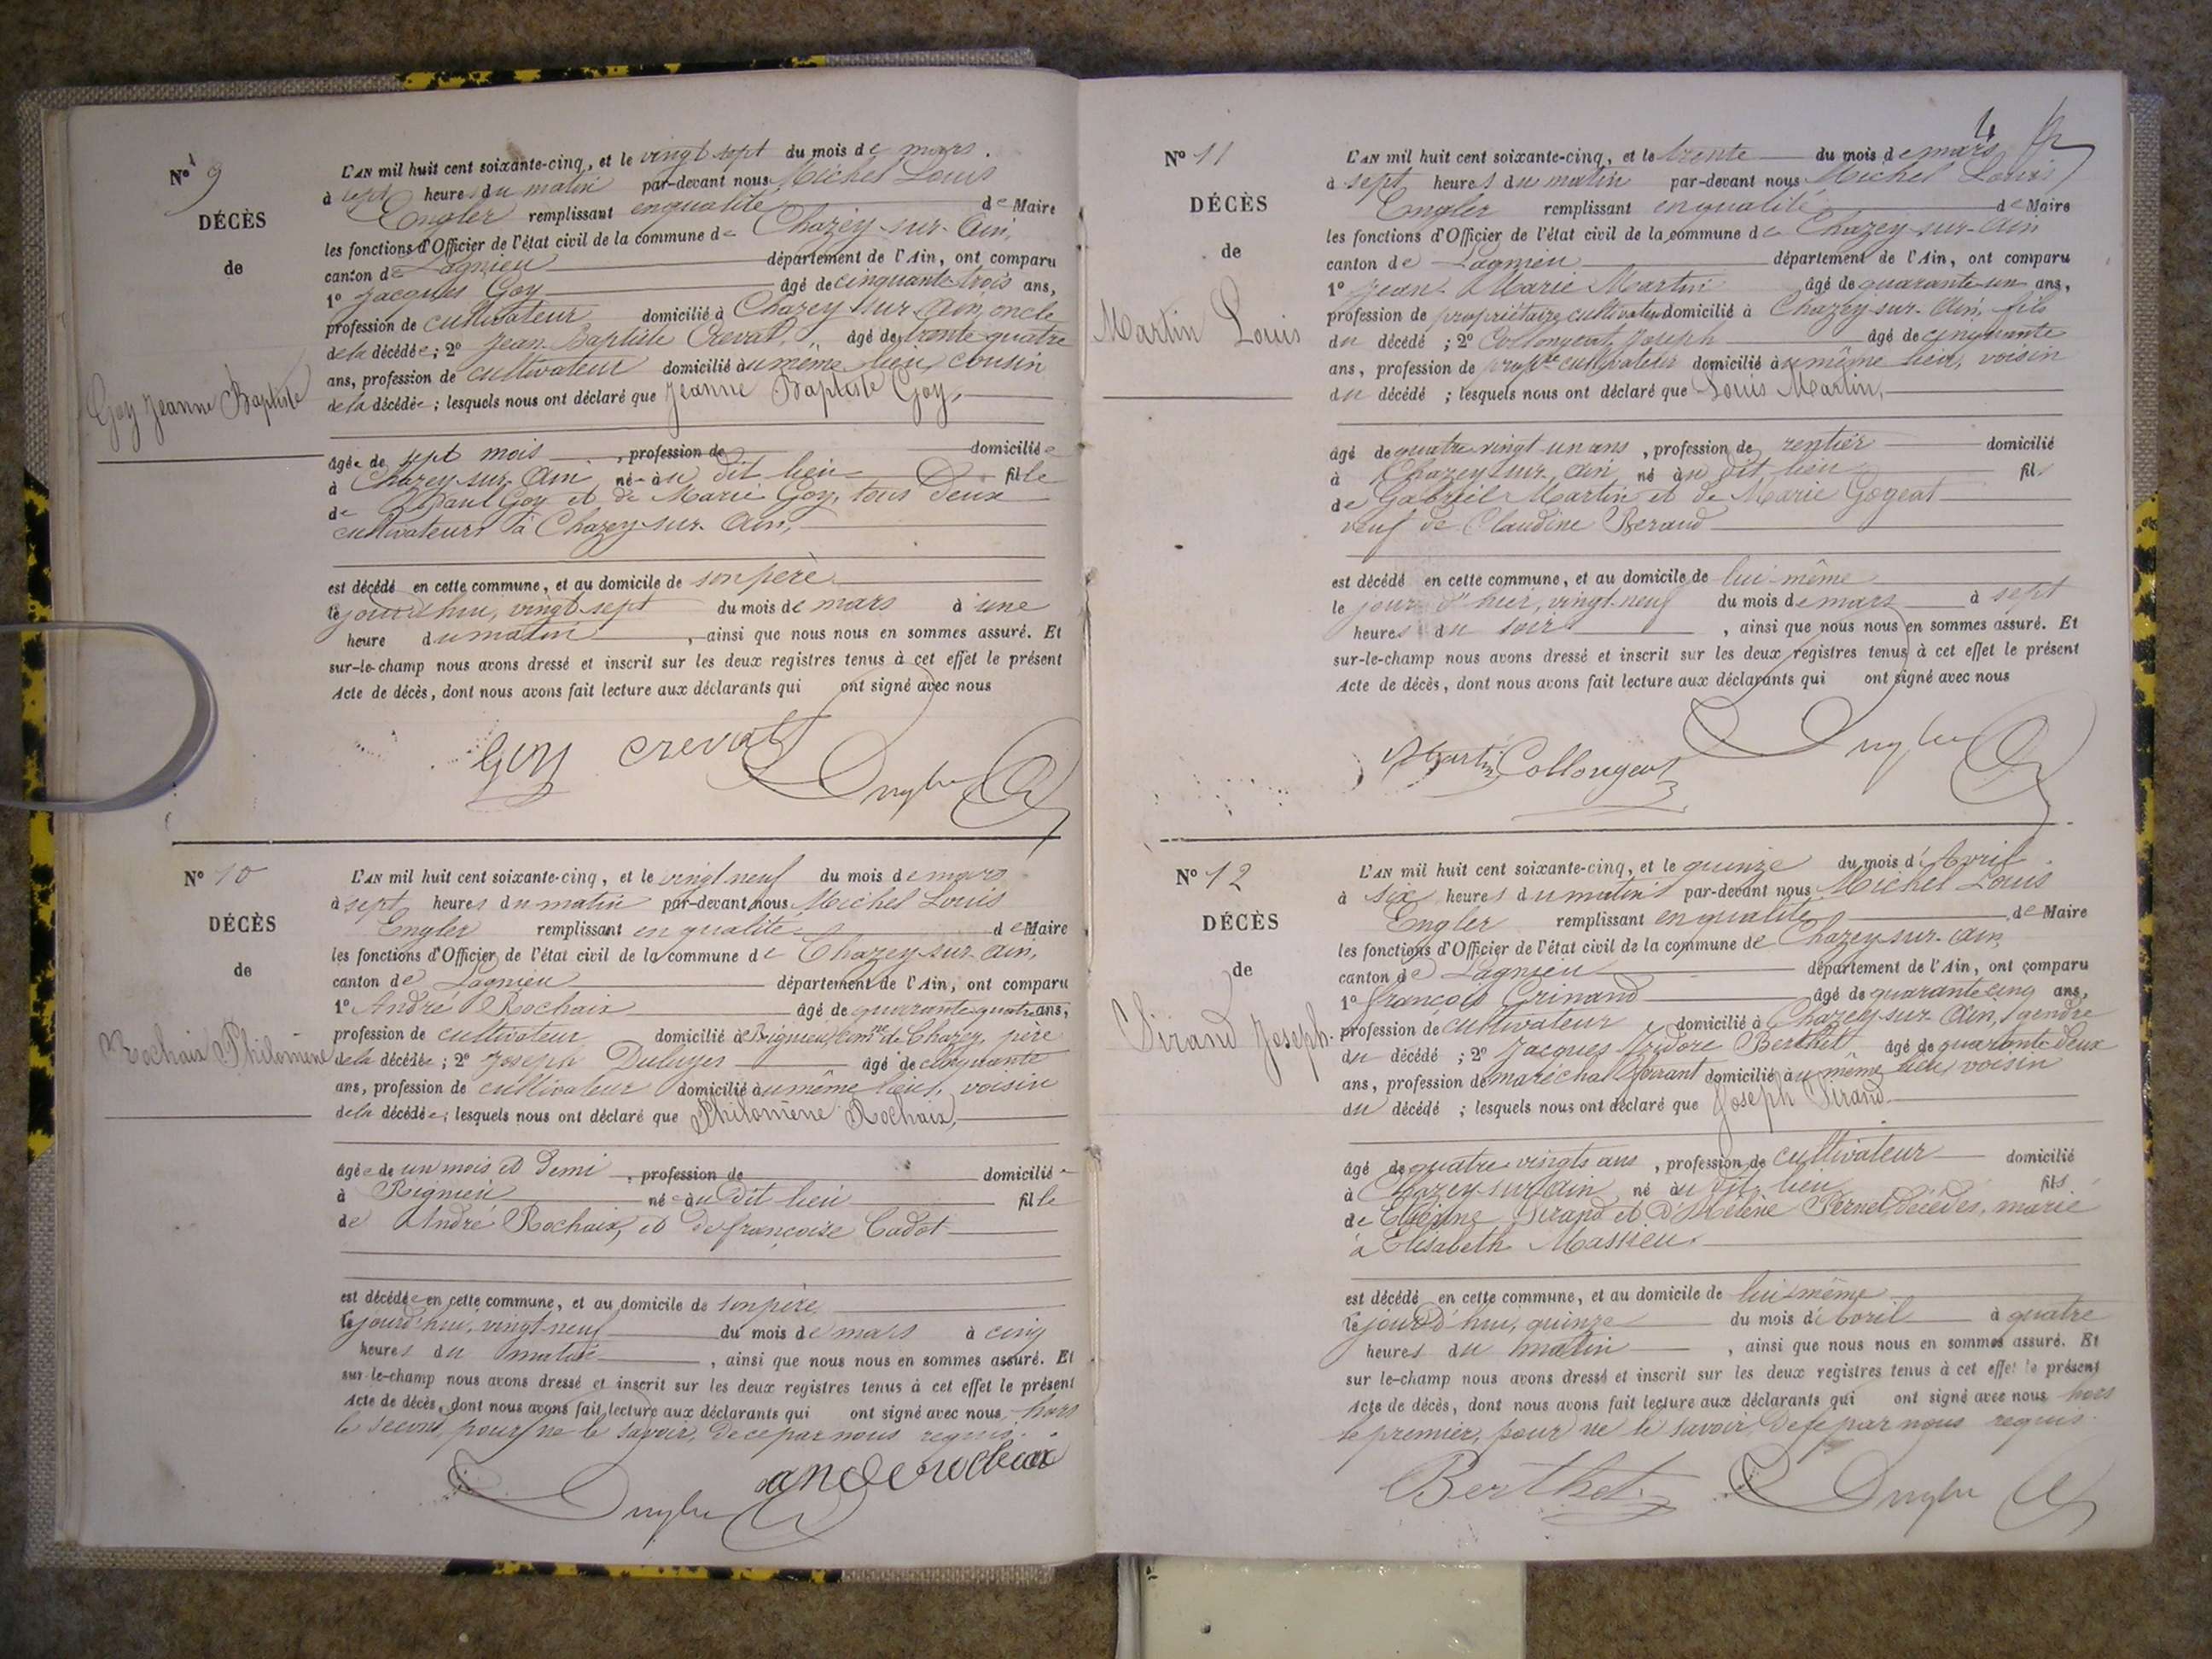 N° 9
DÉCÈS
de
Goy Jeanne Baptiste
L'AN mil huit cent soixante-cinq, et le vingt sept du mois de mars.
à sept heures du matin par-devant nous Michel Louis
Engler remplissant en qualité de Maire
les fonctions d'Officier de l'état civil de la commune de Chazey-sur-Ain,
canton de Lagnieu département de l'Ain, ont comparu
1° Jacques Goy âgé de cinquante trois ans,
profession de cultivateur domicilié à Chazey sur Ain, oncle
de la décédée; 2° Jean-Baptiste Crevat, âgé de trente quatre
ans, profession de cultivateur domicilié au même lieu, cousin
de la décédée; lesquels nous ont déclaré que Jeanne Baptiste Goy,
âgée de sept mois, profession de domiciliée
à Chazey sur Ain née au dit lieu fille
de Paul Goy et de Marie Goy, tous deux
cultivateurs à Chazey-sur-Ain,
est décédé en cette commune, et au domicile de son père
le jourd'hui, vingt sept du mois de mars à une
heure du matin, ainsi que nous nous en sommes assuré. Et
sur-le-champ nous avons dressé et inscrit sur les deux registres tenus à cet effet le présent
Acte de décès, dont nous avons fait lecture aux déclarants qui ont signé avec nous
Goy Crevat Engler
N° 10
DÉCÈS
de
Rochaix Philomène
L'AN mil huit cent soixante-cinq, et le vingt neuf du mois de mars
à sept heures du matin par-devant nous Michel Louis
Engler remplissant en qualité de Maire
les fonctions d'Officier de l'état civil de la commune de Chazey-sur-Ain,
canton de Lagnieu département de l'Ain, ont comparu
1° André Rochaix âgé de quarante quatre ans,
profession de cultivateur domicilié à Rignieu, comne de Chazey, père
de la décédée; 2° Joseph âgé de cinquante
ans, profession de cultivateur domicilié au même lieu, voisin
de la décédée; lesquels nous ont déclaré que Philomène Rochaix,
âgée de un mois et demi, profession de domiciliée
à Rignieu née au dit lieu fille
de André Rochaix, et de françoise Cadot
est décédée en cette commune, et au domicile de son père
le jourd'hui, vingt neuf du mois de mars à cinq
heures du matin, ainsi que nous nous en sommes assuré. Et
sur-le-champ nous avons dressé et inscrit sur les deux registres tenus à cet effet le présent
Acte de décès, dont nous avons fait lecture aux déclarants qui ont signé avec nous, hors
le second, pour ne le savoir, de ce par nous requis.
Engler
N° 11
DÉCÈS
de
Martin Louis
4
L'AN mil huit cent soixante-cinq, et le trente du mois de mars
à sept heures du matin par-devant nous Michel Louis
Engler remplissant en qualité de Maire
les fonctions d'Officier de l'état civil de la commune de Chazey-sur-Ain
canton de Lagnieu département de l'Ain, ont comparu
1° Jean-Marie Martin âgé de quarante un ans,
profession de propriétaire cultivateur domicilié à Chazey-sur-Ain, fils
du décédé; 2° Collongeat Joseph âgé de cinquante
ans, profession de propre cultivateur domicilié au même lieu, voisin
du décédé; lesquels nous ont déclaré que Louis Martin,
âgé de quatre vingt un ans, profession de rentier domicilié
à Chazey sur Ain né au dit lieu fils
de Gabriel Martin et de Marie Gogeat
veuf de Claudine Berand
est décédé en cette commune, et au domicile de lui-même
le jour d'hier, vingt-neuf du mois de mars à sept
heures du soir, ainsi que nous nous en sommes assuré. Et
sur-le-champ nous avons dressé et inscrit sur les deux registres tenus à cet effet le présent
Acte de décès, dont nous avons fait lecture aux déclarants qui ont signé avec nous
Martin Collongeat Engler
N° 12
DÉCÈS
de
Sirand Joseph.
L'AN mil huit cent soixante-cinq, et le quinze du mois d'Avril.
à six heures du matin par-devant nous Michel Louis
Engler remplissant en qualité de Maire
les fonctions d'Officier de l'état civil de la commune de Chazey-sur-Ain
canton de Lagnieu département de l'Ain, ont comparu
1° françois Grinand âgé de quarante cinq ans,
profession de cultivateur domicilié à Chazey-sur-Ain, gendre
du décédé; 2° Jacques Izidore Berthet âgé de quarante deux
ans, profession de maréchal ferrant domicilié au même lieu, voisin
du décédé; lesquels nous ont déclaré que Joseph Sirand
âgé de quatre-vingts ans, profession de cultivateur domicilié
à Chazey-sur-Ain né au dit lieu fils
de Etienne Sirand et d'Hélène Pernet, décédés, marié
à Elisabeth Massieu.
est décédé en cette commune, et au domicile de lui même
le jourd'hui, quinze du mois d'avril à quatre
heures du matin, ainsi que nous nous en sommes assuré. Et
sur le-champ nous avons dressé et inscrit sur les deux registres tenus à cet effet le présent
Acte de décès, dont nous avons fait lecture aux déclarants qui ont signé avec nous hors
le premier, pour ne le savoir, de ce par nous requis.
Berthet Engler